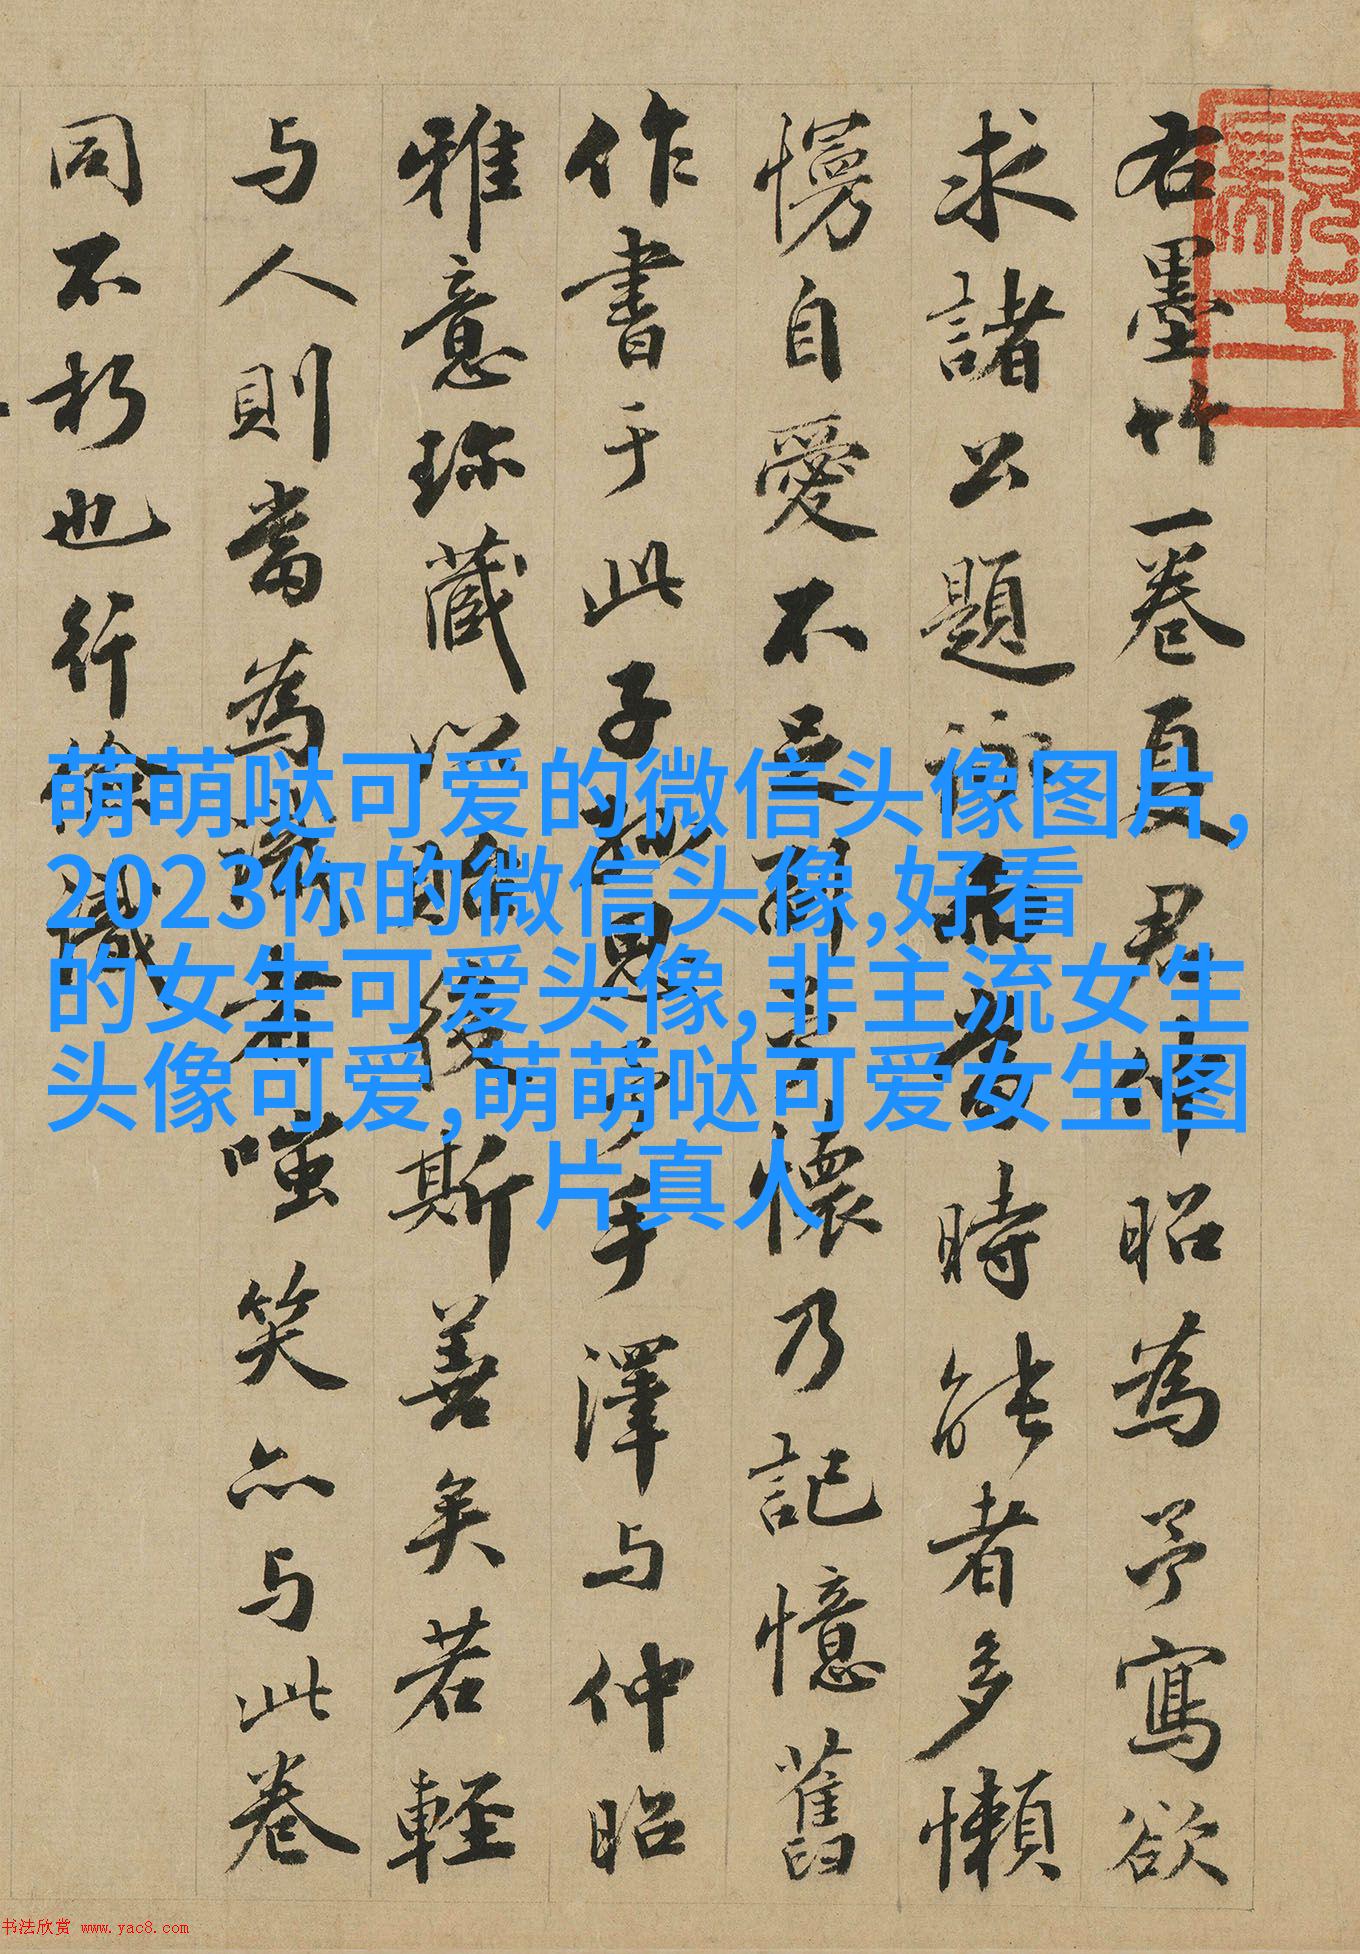 右墨竹一卷夏君仲昭為予寫欲
求諸公題詠時能者多懶
慢自愛不足懷乃記憶舊
作書于此子孫思予手澤与仲昭
雅意珍藏以貽後斯善矣若輕
与人則當為識者嗤笑亦与此卷
同不朽也行識
萌萌哒可爱的微信头像图片,
2023你的微信头像,好看
的女生可爱头像,非主流女生
头像可爱,萌萌哒可爱女生图
片真人
书法欣赏 www.yac8.com